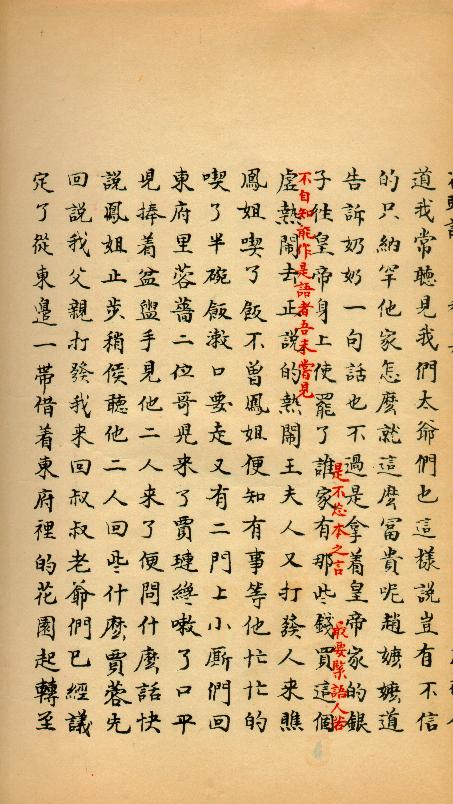 道我常聽見我們太爺們也這樣說豈有不信
的只納罕他家怎麽就這麽富貴呢趙嬷嬷道
告訴奶奶一句話也不過是拿着皇帝家的銀
是不忘本之言
最要緊語人若
子往皇帝身上使罷了誰家有那些錢買這個
不自知能作是語者吾未嘗見
虛熱鬧去正說的熱鬧王夫人又打發人来瞧
鳳姐喫了飯不曾鳳姐便知有事等他忙忙的
喫了半碗飯漱口要走又有二門上小厮們回
東府里蓉薔二位哥児来了賈璉纔漱了口平
児捧着盆盥手見他二人来了便問什麽話快
說鳳姐止步稍侯聽他二人回些什麽賈蓉先
回說我父親打發我来回叔叔老爺們已經議
定了從東邊一帶借着東府裡的花園起轉至